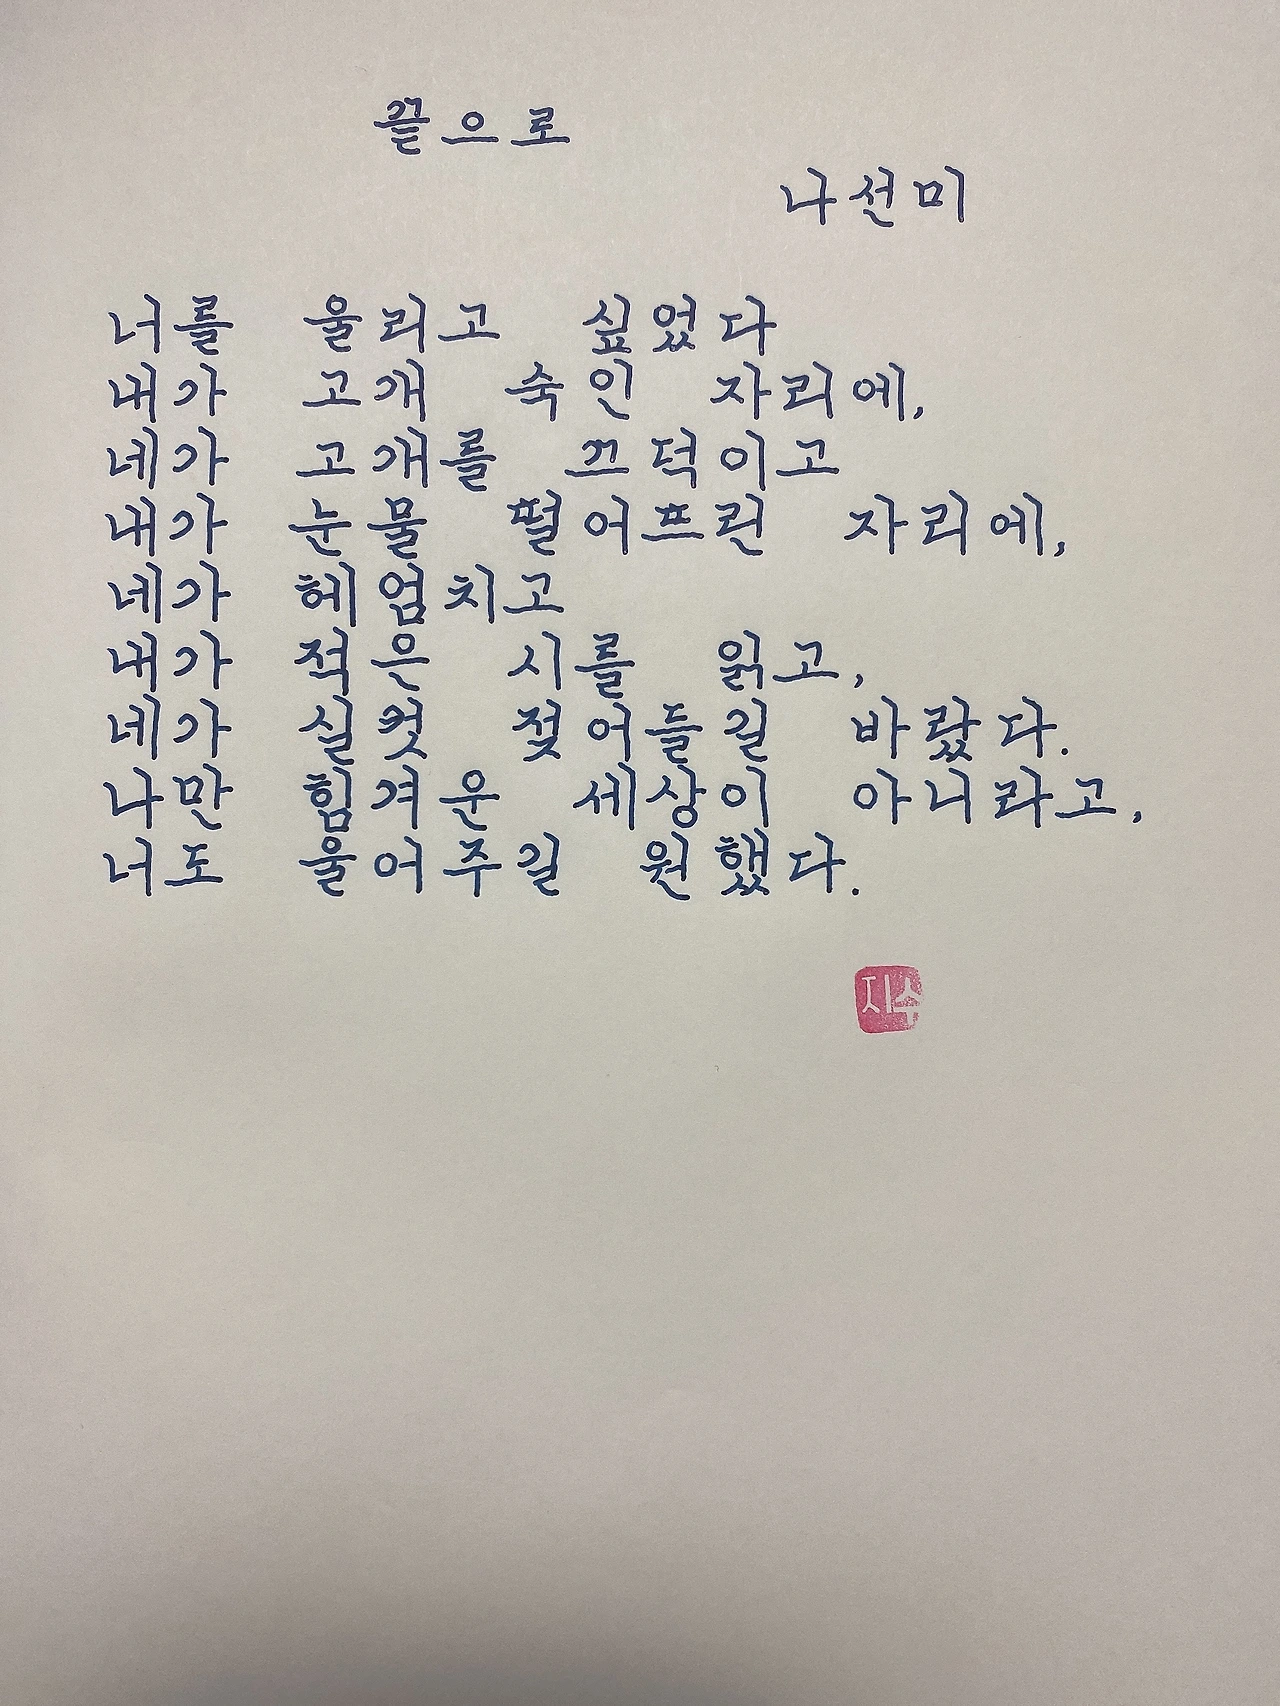 끝으로
나선미
너를 울리고 싶었다
내가 고개 숙인 자리에,
네가 고개를 끄덕이고
내가 눈물 떨어뜨린 자리에,
네가 헤엄치고
내가 적은 시를 읽고,
네가 실컷 젖어들길 바랐다.
나만 힘겨운 세상이 아니라고,
너도 울어주길 원했다.
지수